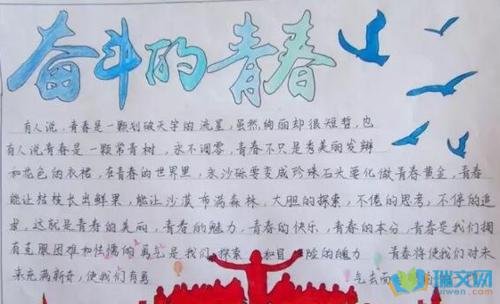 奋斗的青春
有人说,青春是一颗划破天宇的流星,虽然绚丽却很短暂,也
有人说青春是一颗常青树,永不调零,青春不只是秀美丽发辫
和花色的衣裙,在青春的世界里,永沙砾要变成珍珠石大要化做青春黄金,青春
能让枯枝长出鲜果,能让沙漠布满森林,大胆的探索,不倦的思考,不停的追
求,这就是青春的美丽,青春的魅力,青春的快乐,青春的本分,青春是我们拥
有克服困难和怯懦的勇气是我们探索和冒险的魄力 青春将使我们对未
来充满新奇,使我们有勇 气去面
瑞文网
ruiwen.com